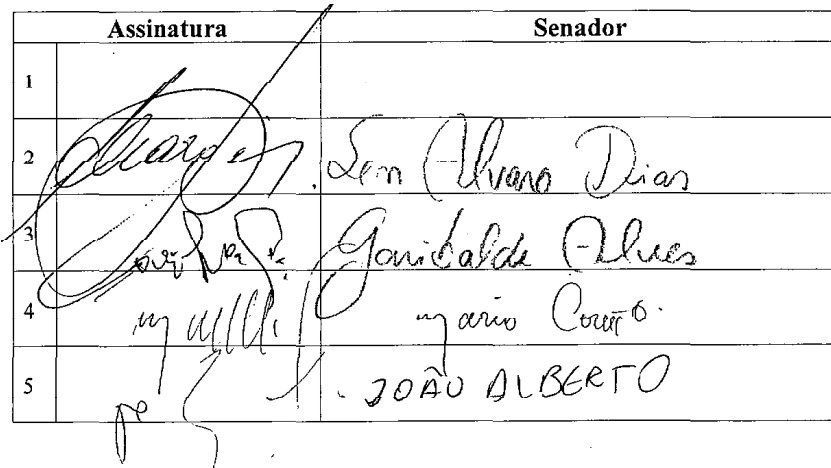 Assinatura Senador
1
2 Sen Alvaro Dias
3 Garibalde Alves
4 Mario Couto.
5 JOÃO ALBERTO